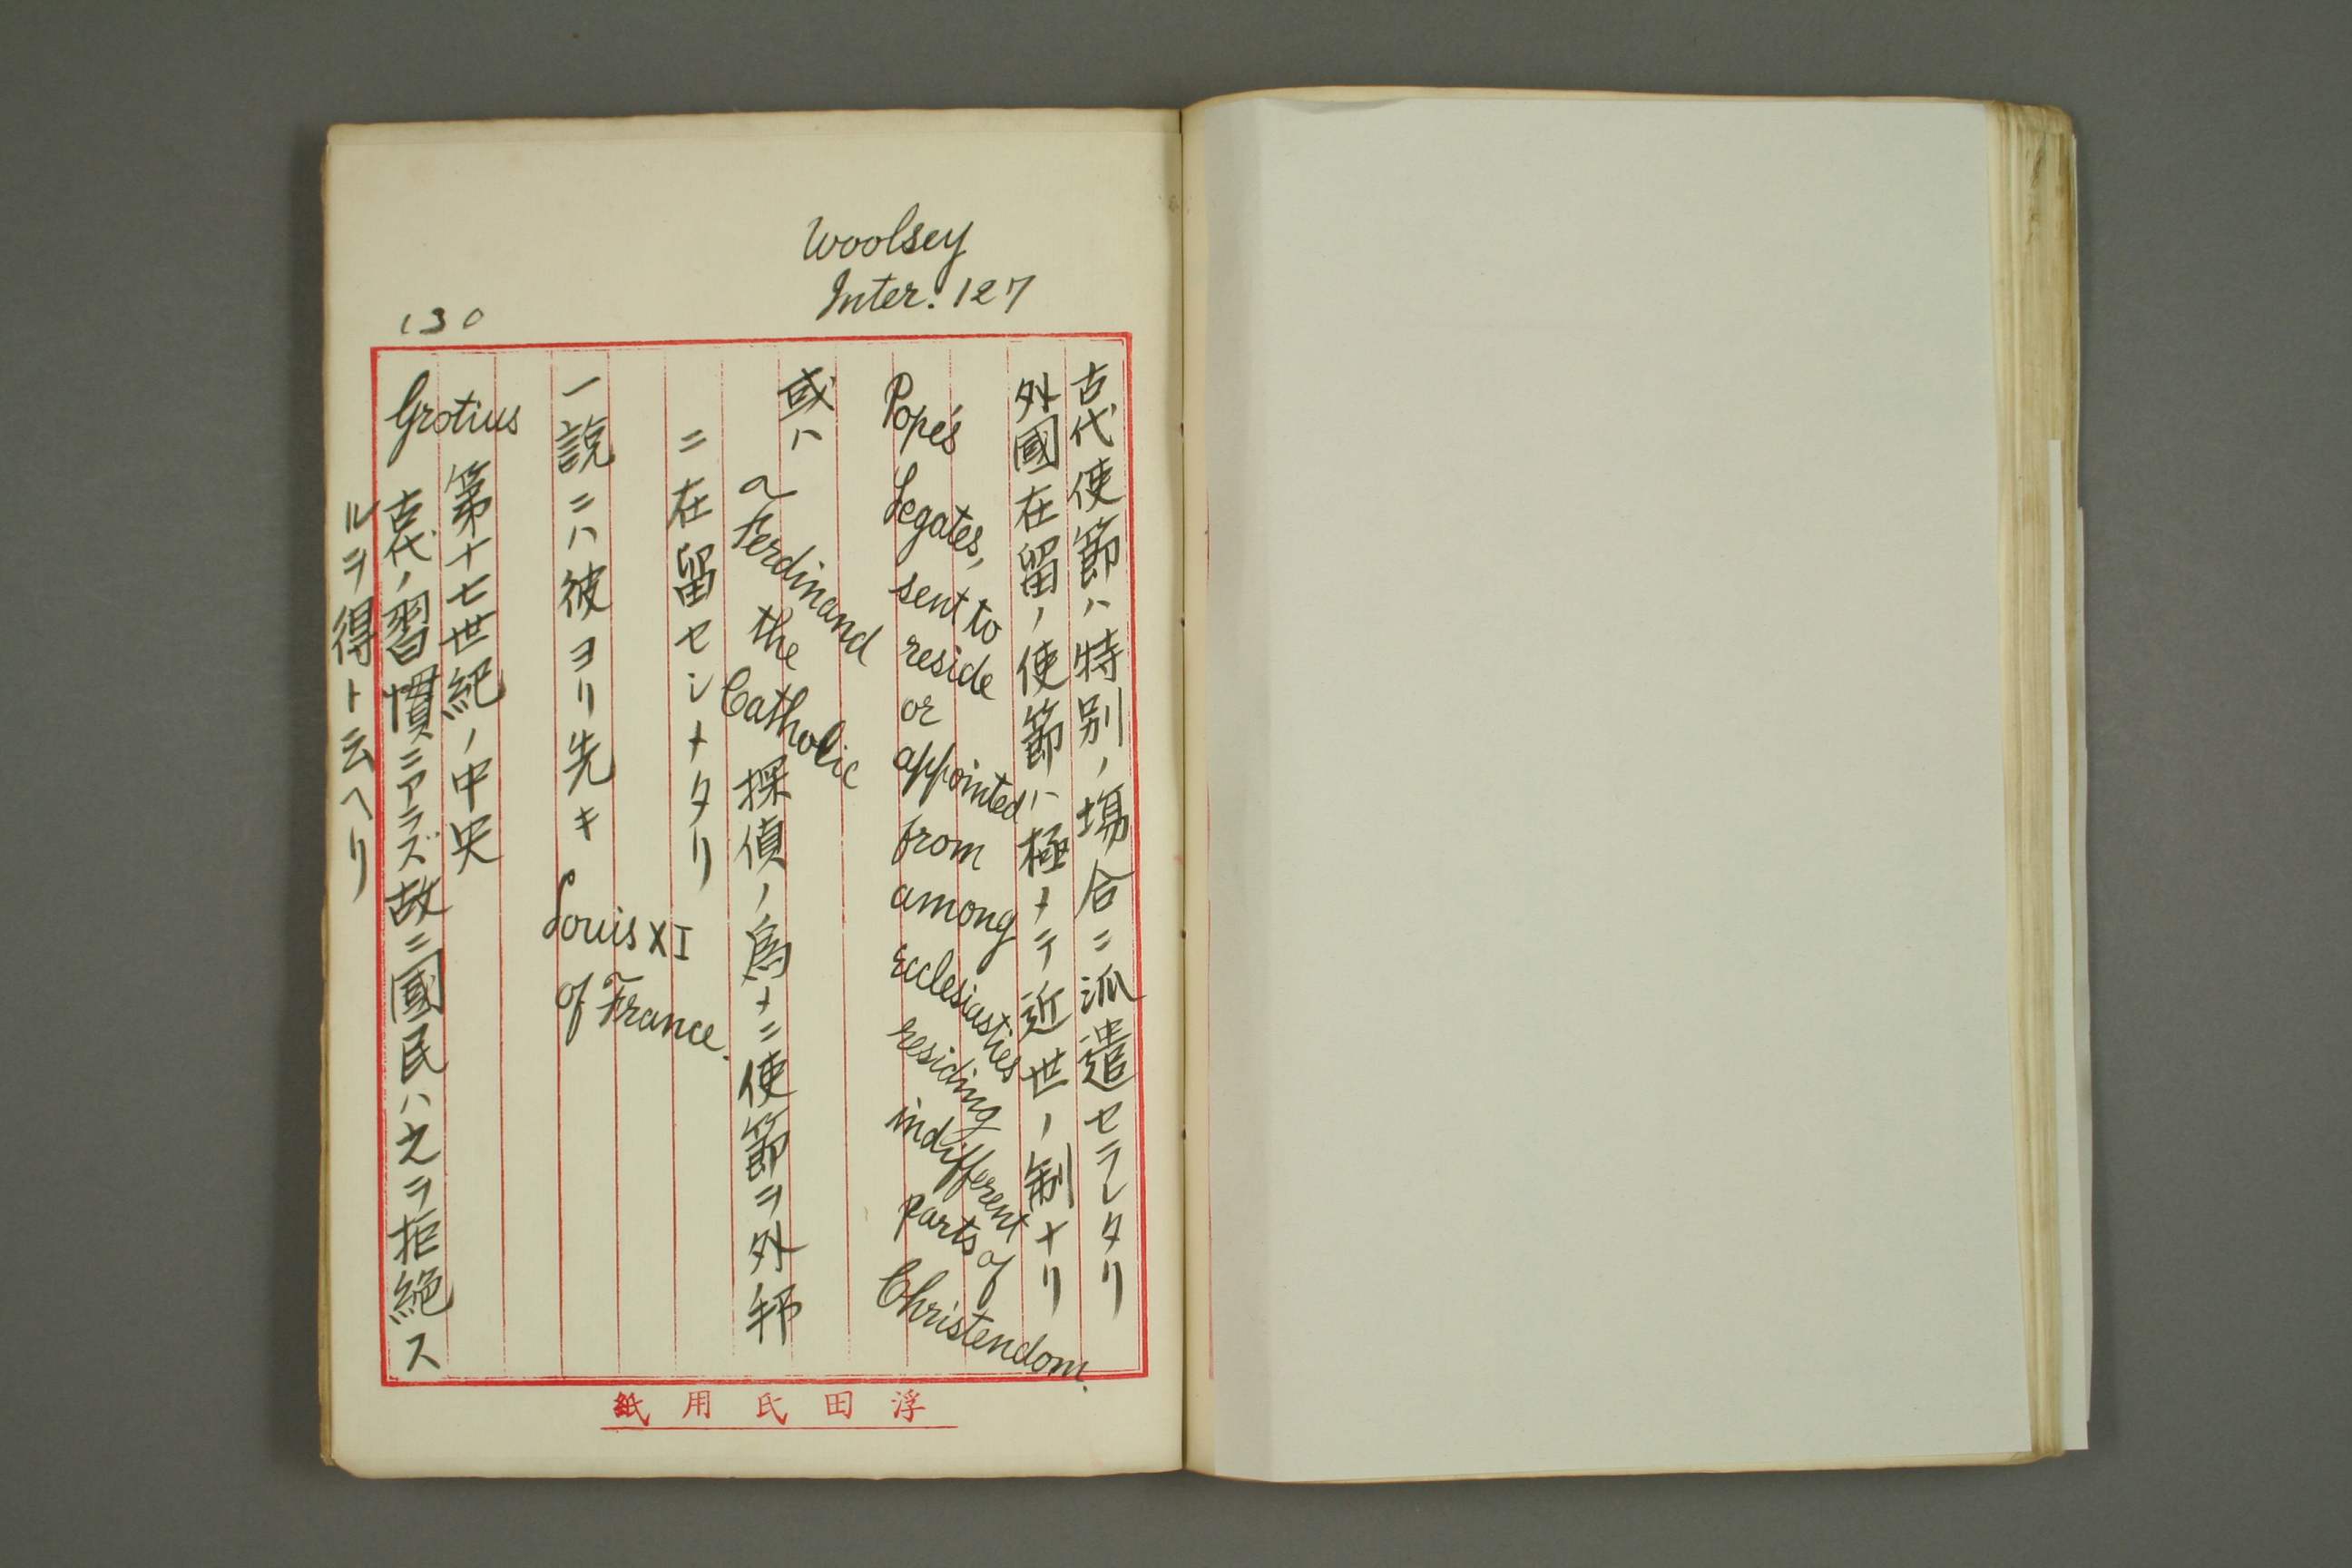 Woolsey
Inter. 127
130
古代使節ハ特別ノ塲合ニ派遣セラレタリ
外國在留ノ使節ハ極メテ近世ノ制ナリ
Pope's Legates, sent to reside or appointed from among ecclesiastics residing in different parts of Christendom.
或ハ Ferdinand the Catholic 探偵ノ為メニ使節ヲ外邦
ニ在留セシメタリ
一説ニハ彼ヨリ先キ Louis XI of France.
第十七世紀ノ中央
Grotius 古代ノ習慣ニアラズ故ニ國民ハ之ヲ拒絶ス
ルヲ得ト云ヘリ
浮田氏用紙